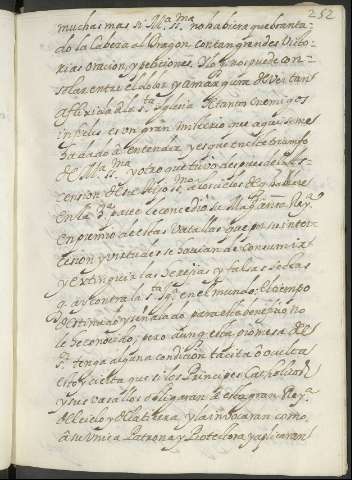 252
muchas mas si M.ª ss.ma no hubiera quebranta-
do la Cabeza al Dragon con tan grandes Victo-
rias oracion, y peticiones. Y lo q nos puede con-
solar entre el dolor y amargura de ver tan
afligida a la s.ta Iglesia de tantos enemigos
infieles es un gran misterio que aqui se me
ha dado à entender y es que en este triunfo
de M.ª ss.ma y otro que tuvo despues de la As-
cension de su hijo ss.mo a los cielos de que hablare
en la 3.ª parte le concedio su Mag.d à nra Rey.ª
en premio de estas Vatallas que por su inter-
cesion y virtudes se havian de consumir
y extinguir las heregias y falsas sectas
q ay contra la s.ta Ig.ª en el mundo. El tiempo
destinado y señalado para este beneficio no
le he conocido; pero aunq esta promesa del
S.r tenga alguna condicion tacita ò oculta
estoy cierta que si los Principes Catholicos
y sus vasallos obligaran à esta gran Rey.ª
del cielo y de la tierra y la invocaran como
â su Unica Patrona y Protectora y aplicaran